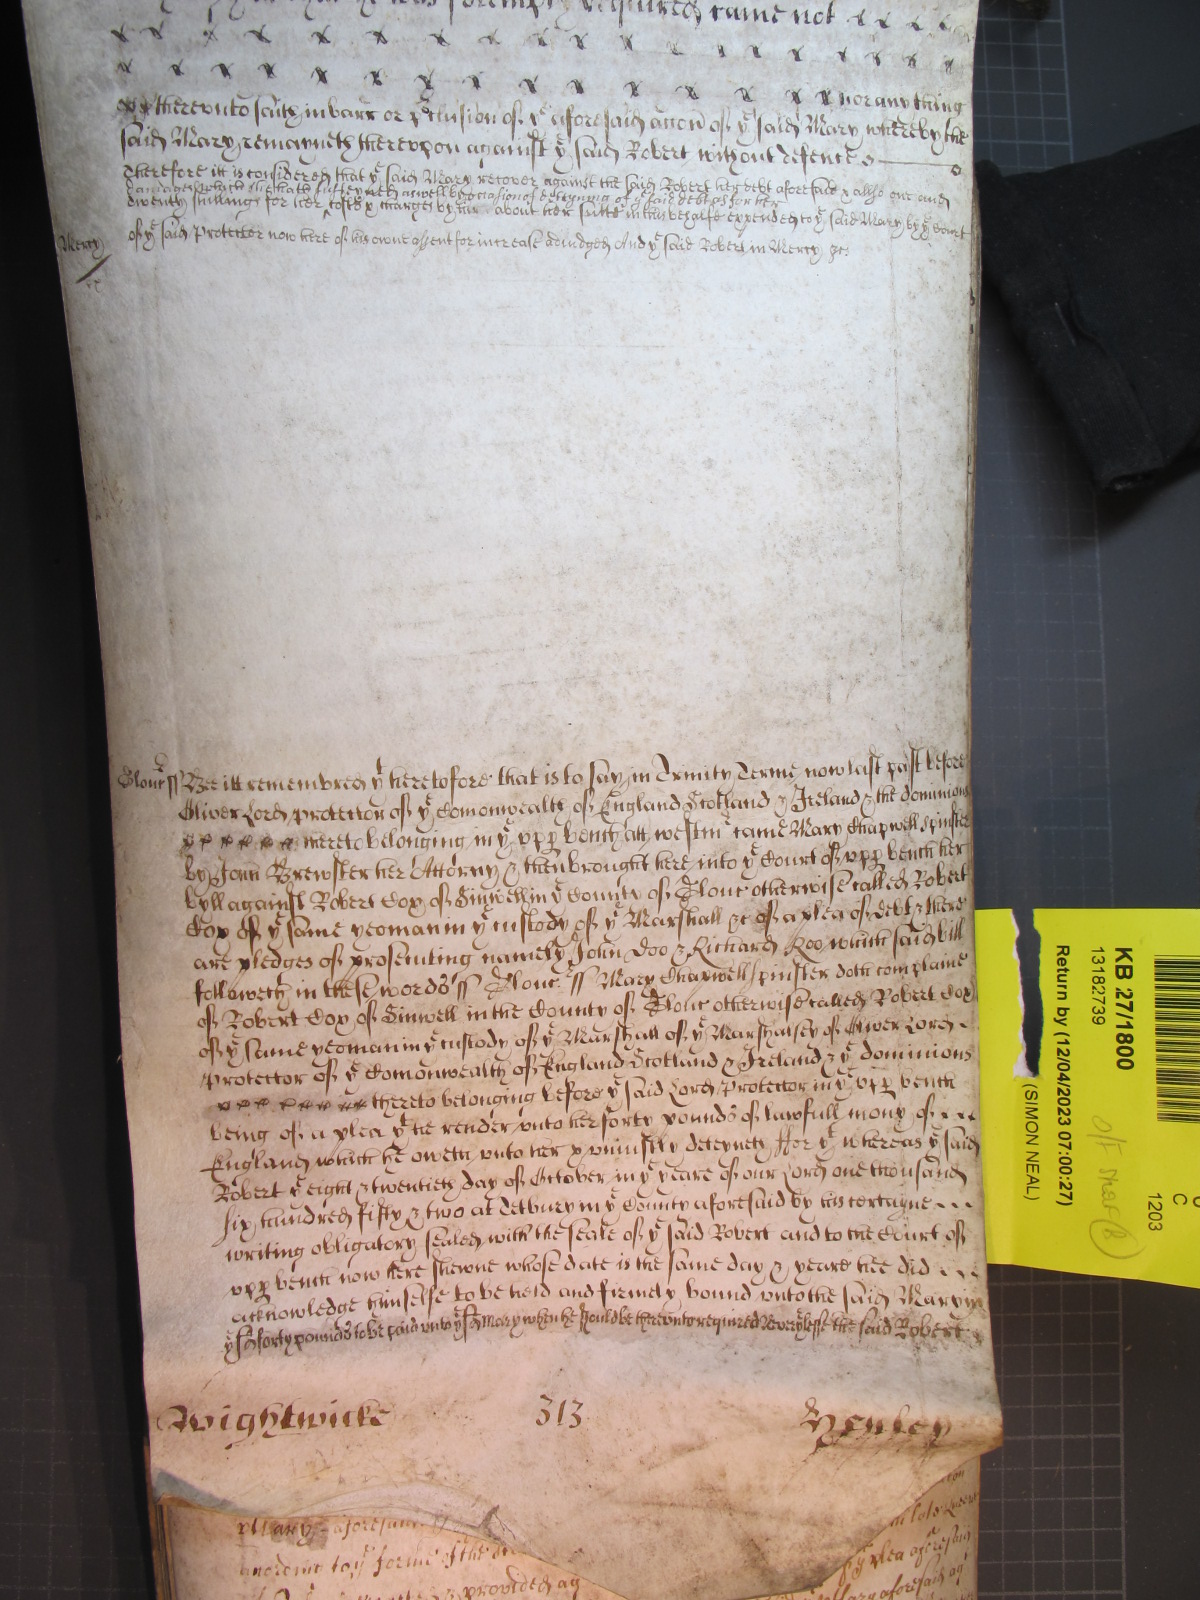 required came not x x x x
x x x x x x x x x x x x x x x x
x x x x x x x x x x x x x x nor any thing
thereunto saith in barr or p'clusion of ye aforesaid accon of ye said Mary whereby the
said Mary remayneth thereupon against ye said Robert without defence
Therefore itt is considered that ye said Mary recover against the said Robert her debt aforesaid & allso one and
damages which she hath susteyned aswell by occasion of deteyning of ye said debt as for her
twenty shillings for her costs & charges by her about her suite in this behalfe expended to ye said Mary by ye Court
of ye said Protector now here of his owne assent for increase adiudged And ye said Robert in Mercy &c
Mercy
Glouc ss Be itt remembred yt heretofore that is to say in Trinity Terme now last past before
Oliver Lord protector of ye Comonwealth of England Scotland & Ireland & the dominions
x x x x x x thereto belonging in ye upp bench att westm came Mary Chapwell spinster
by John Brewster her Attorny & then brought here into ye Court of upp bench her
byll against Robert Cox of Sinwell in ye County of Glouc otherwise called Robert
Cox of ye same yeoman in ye custody of ye Marshall &c of a plea of debt & there
are pledges of prosecuting namely John Doo & Richard Roo which said bill
followeth in these words ss Glouc ss Mary Chapwell spinster doth complaine
of Robert Cox of Sinwell in the County of Glouc otherwise called Robert Cox
of ye same yeoman in ye custody of ye Marshall of ye Marshalsey of Oliver Lord
Protector of ye Comonwealth of England Scotland & Ireland & ye dominions
x x x x x x x thereto belonging before ye said Lord Protector in ye upp bench
being of a plea yt he render unto her forty pounds of lawfull mony of
England which he oweth unto her & uniustly deteyneth ffor yt whereas ye said
Robert ye eight & twentieth day of October in ye yeare of our Lord one thousand
six hundred fifty & two at Tetbury in ye County aforesaid by his certayne
writing obligatory sealed with the seale of ye said Robert and to the Court of
upp bench now here shewne whose date is the same day & yeare hee did
acknowledge himselfe to be held and firmely bound unto the said Mary in
ye sd forty pounds to be paid unto ye sd Mary when he should be thereunto required Neverthelesse the said Robert
Wightwicke 313 Henley
Mary aforesaid
according to ye forme of the
provided
ye plea aforesaid
Mary aforesaid
KB 27/1800
13182739
Return by (12/04/2023 07:00:27)
(SIMON NEAL)
C
1203